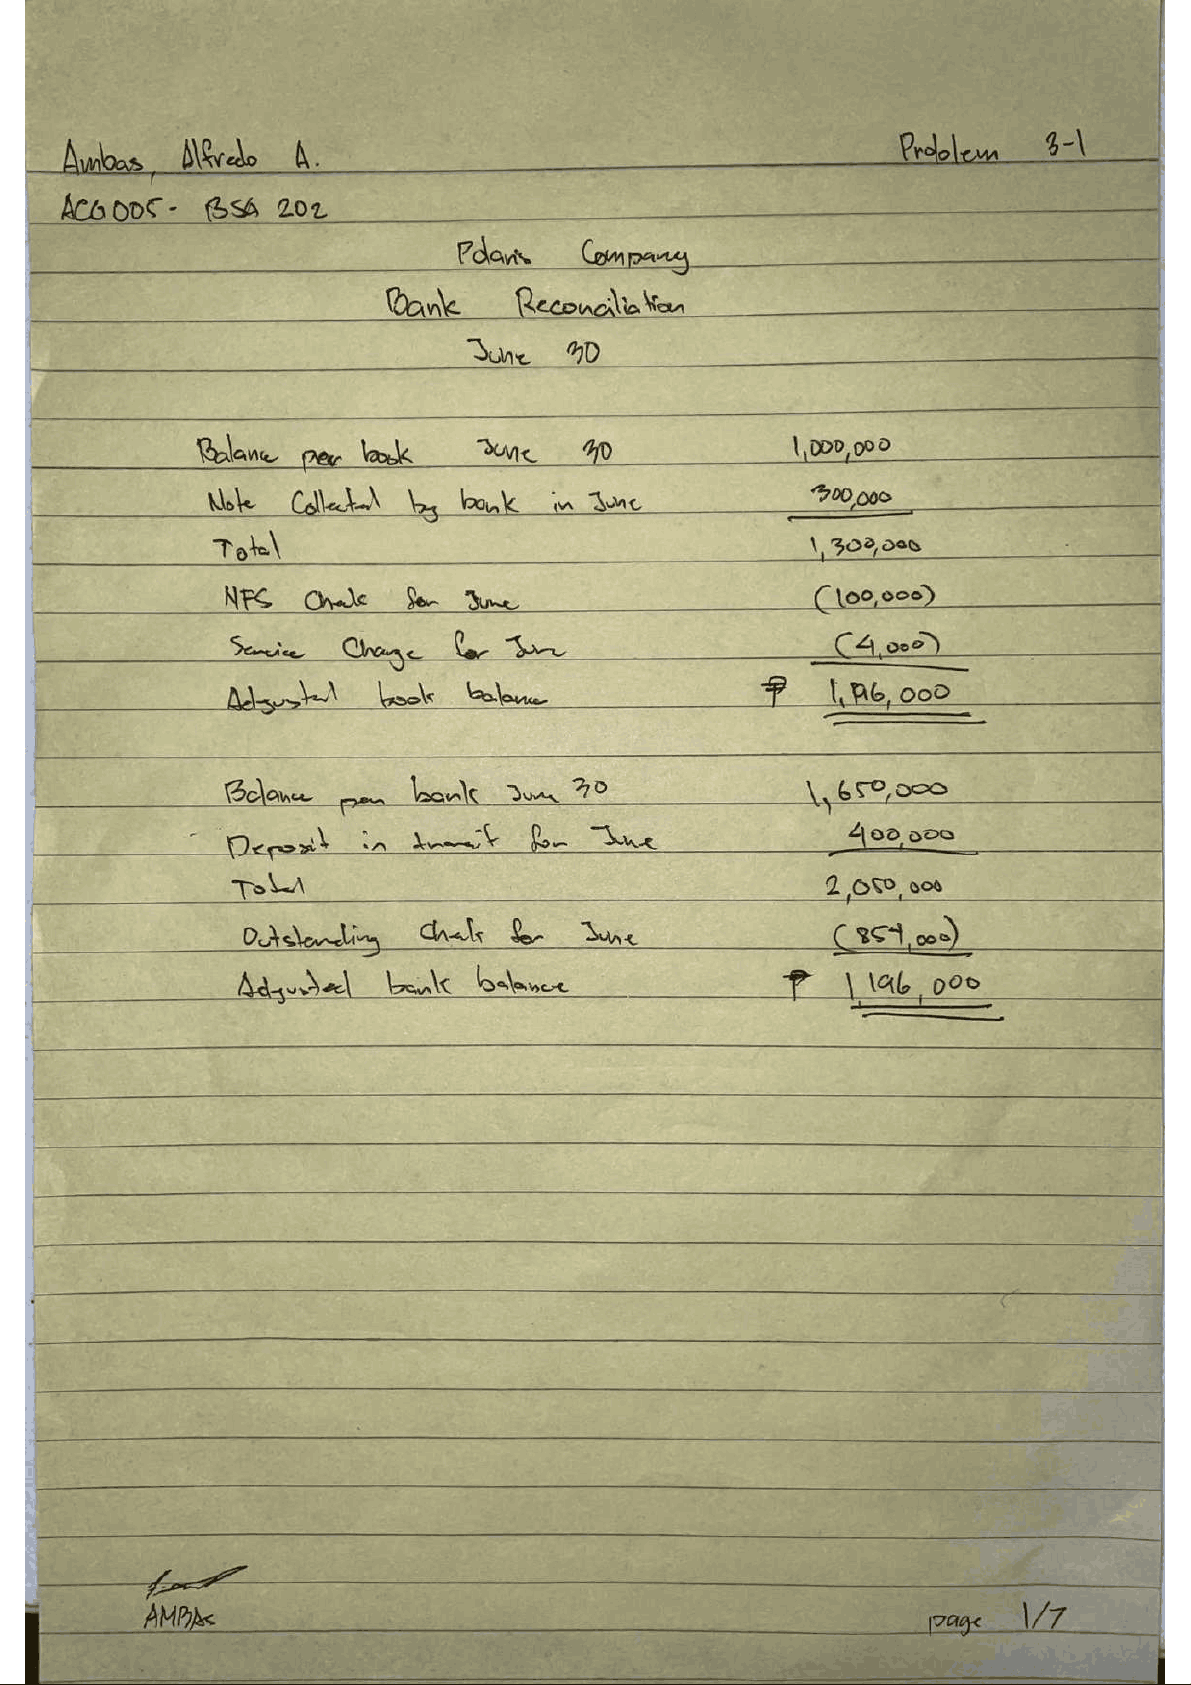 Ambas, Alfredo A. Problem 3-1
ACG005 - BSA 202
Polaris Company
Bank Reconciliation
June 30
Balance per book June 30 1,000,000
Note Collected by bank in June 300,000
Total 1,300,000
NFS Check for June (100,000)
Service Charge for June (4,000)
Adjusted book balance ₱ 1,196,000
Balance per bank June 30 1,650,000
Deposit in transit for June 400,000
Total 2,050,000
Outstanding Check for June (854,000)
Adjusted bank balance ₱ 1,196,000
AMBAS page 1/7